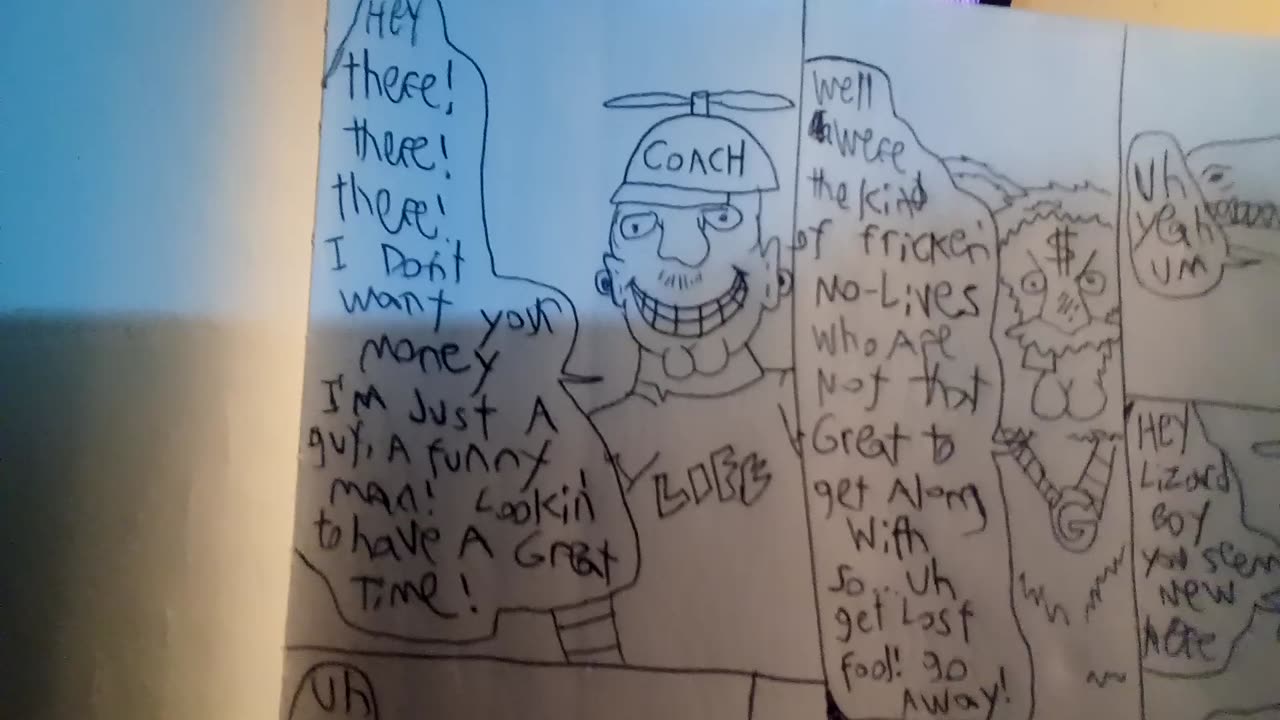 HEY
there!
there!
there!
I Don't
want your
money
I'm Just A
guy, A funny
man! Lookin'
to have A Great
Time!
COACH
LIFE
Well
were
the kind
of fricken'
No-Lives
Who Are
Not that
Great to
get Along
With
so... uh
get Lost
fool! go
AWAY!
$
G
Uh
yeah
UM
HEY
Lizard
BOY
you seem
New
here
Uh